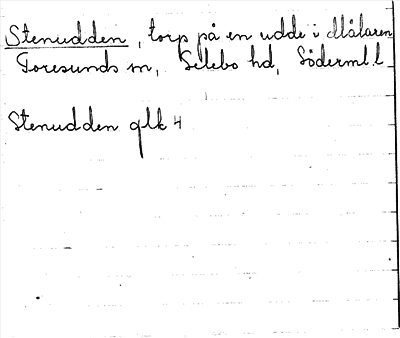 Stenudden, torp på en udde i Mälaren
Toresunds sn, Selebo hd, Söderml l
Stenudden glk 4